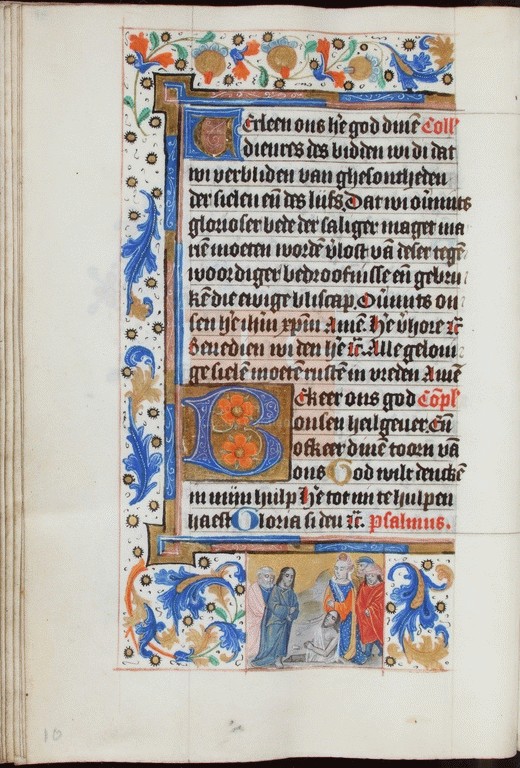 Uerleen ons he god dinē Coll'
dienres des bidden wi di dat
wi verbliden van ghesontheden
der sielen eñ des lijfs, Dat wi ōmits
glorioser bede der saliger maget ma
riē moeten wordē vlost vā deser tegē
woordiger bedroefnisse eñ gebru
kē die ewige bliscap, Ōmits on
sen he ihm xpm Amē. he vhore zc
Benedien wi den he zc Alle gelovi
ge sielē moetē rustē in vreden Amē
Bekeer ons god Cōpl'
onsen heilgever, Eñ
ofkeer dinē toorn vā
ons God wilt dencke
in mijn hulp he tot mi te hulpen
haest Gloria si den zc. psalmus.
10